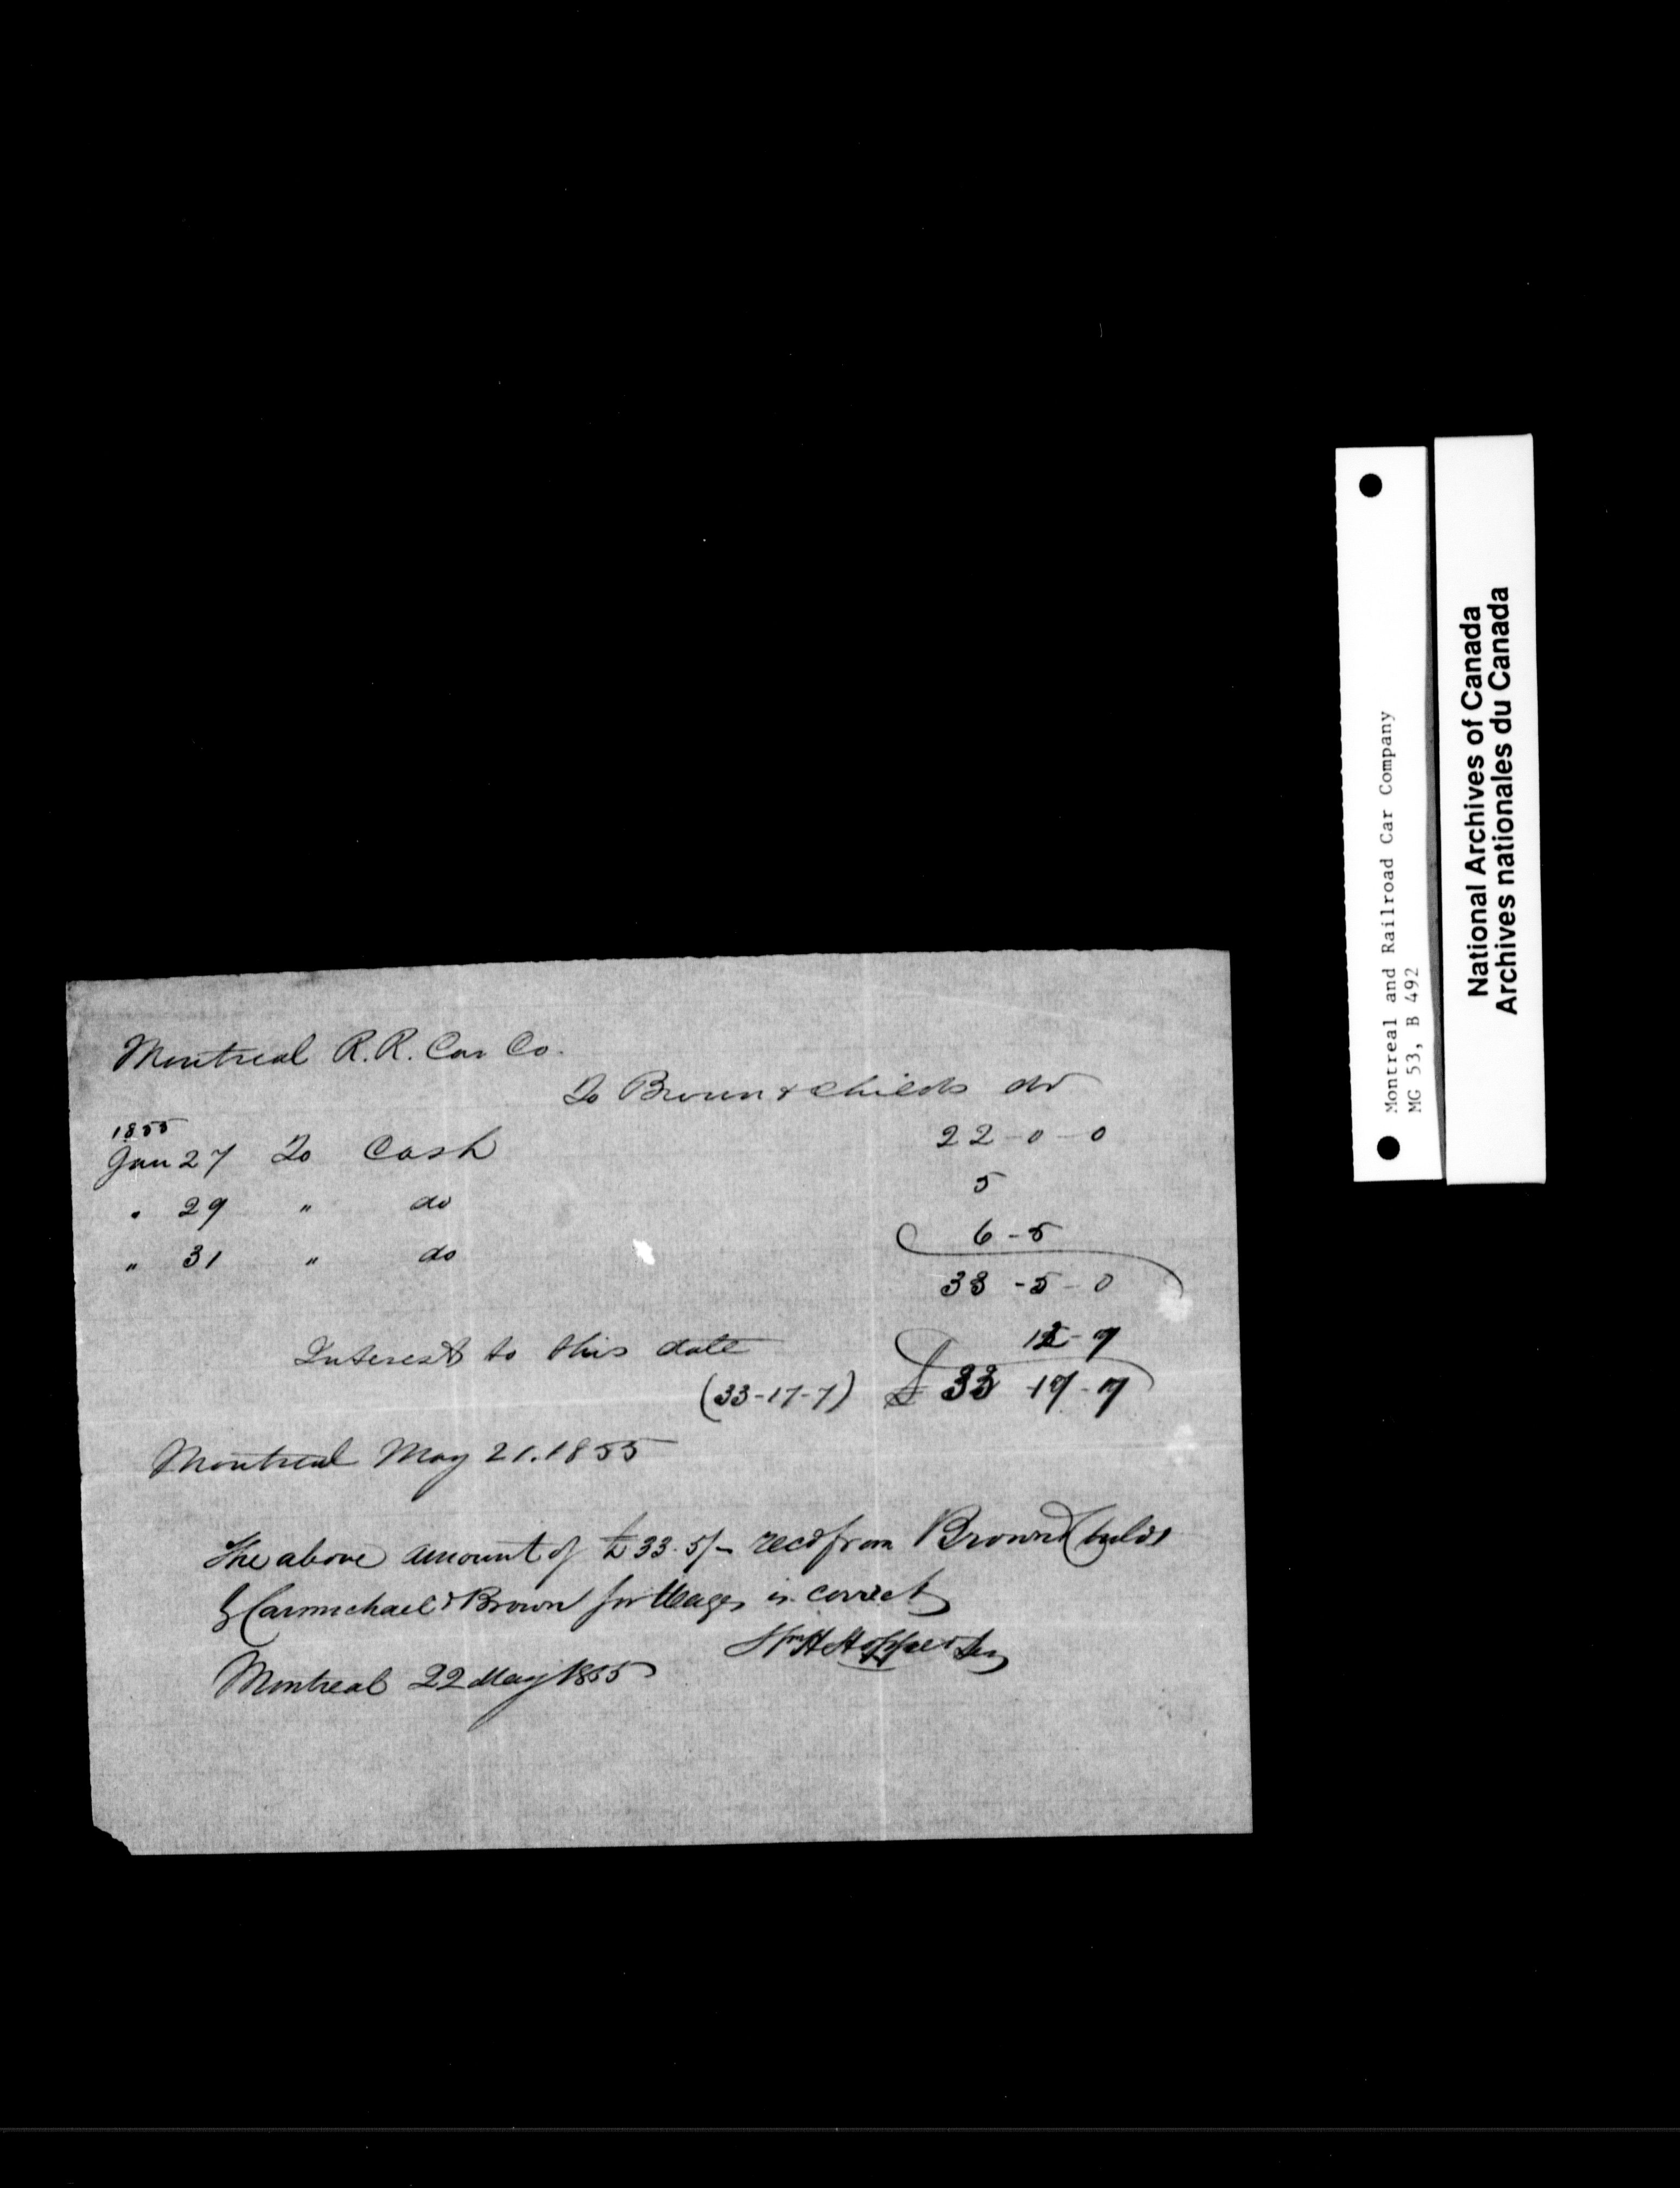 Montreal R.R. Car Co.
To Brown & Childs dr
1855
Jan 27 To Cash 22-0-0
" 29 " do 5
" 31 " do 6-5
33-5-0
Interest to this date 12-7
(33-17-7) £ 33-17-7
Montreal May 21. 1855
The above amount of £33.5/- recd from Brown & Childs
& Carmichael & Brown for Wages is correct
Wm H
Montreal 22 May 1855
Montreal and Railroad Car Company
MG 53, B 492
National Archives of Canada
Archives nationales du Canada